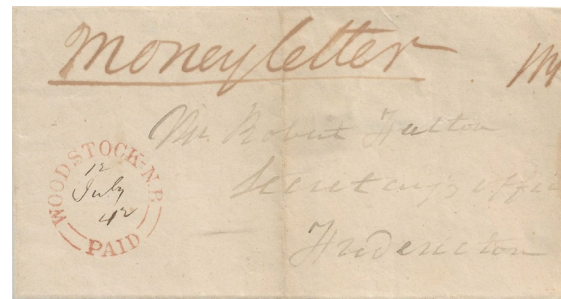 Money letter
Mr. Robert Fulton
Secretary's offi
Fredericton
WOODSTOCK. N.B.
12
July
42
PAID